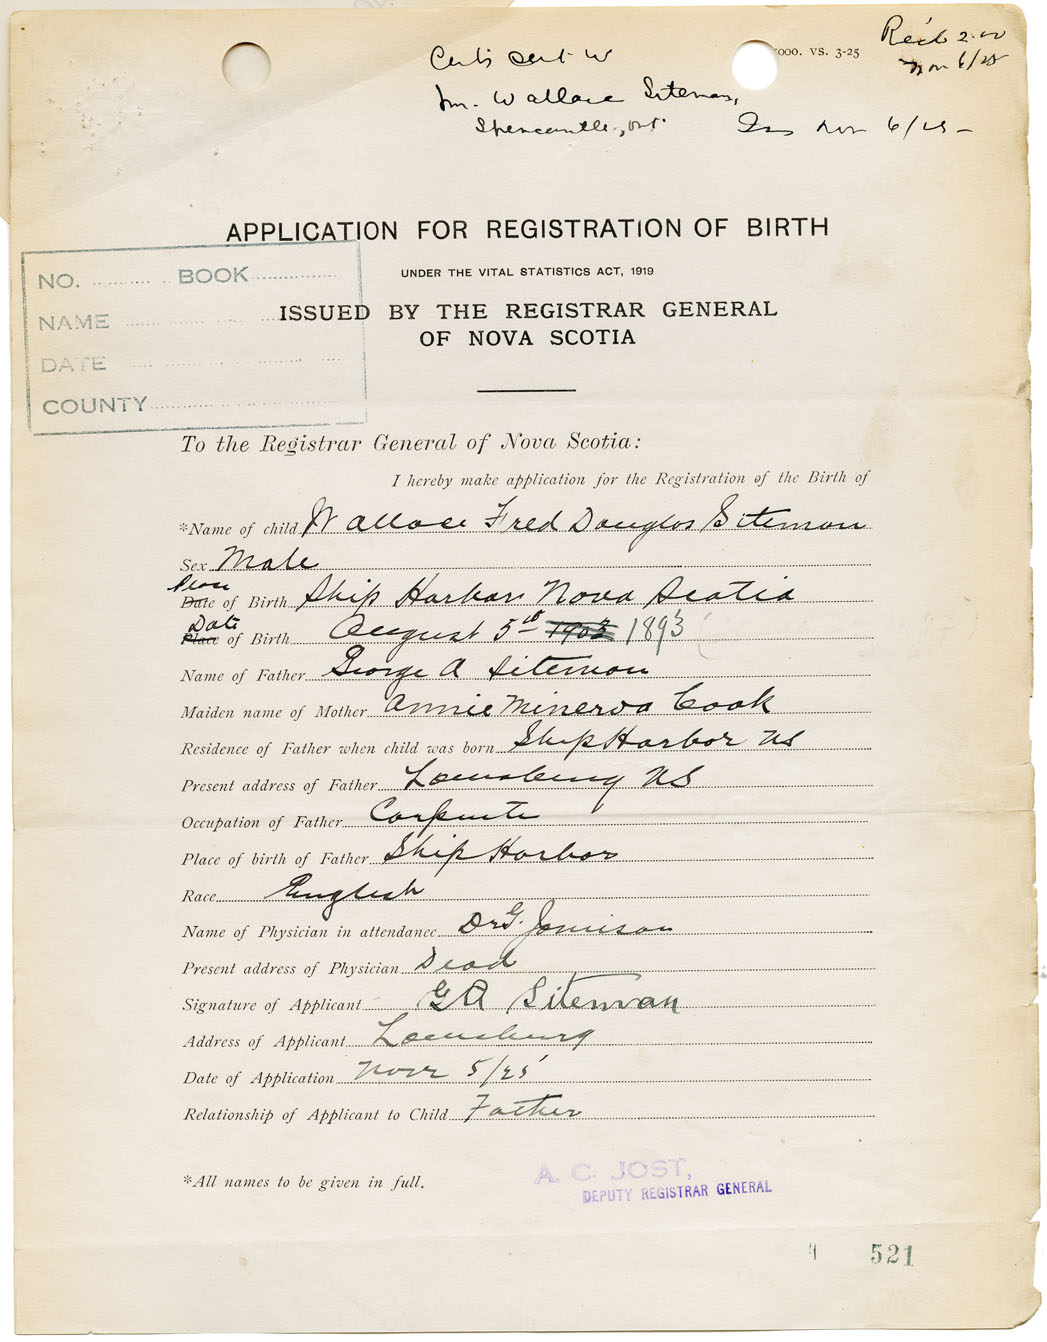 Rec'd 2.00
Nov 6/25
5000. VS. 3-25
Certi sent to
Mr. Wallace Siteman,
Ont. Nov 6/25 -
APPLICATION FOR REGISTRATION OF BIRTH
UNDER THE VITAL STATISTICS ACT, 1919
ISSUED BY THE REGISTRAR GENERAL
OF NOVA SCOTIA
NO. BOOK
NAME
DATE
COUNTY
To the Registrar General of Nova Scotia:
I hereby make application for the Registration of the Birth of
*Name of child Wallace Fred Douglas Siteman
Sex Male
Place
Date of Birth Ship Harbor Nova Scotia
Date
Place of Birth August 5th 1903 1893
Name of Father George A Siteman
Maiden name of Mother Annie Minerva Cook
Residence of Father when child was born Ship Harbor NS
Present address of Father Louisburg NS
Occupation of Father Carpenter
Place of birth of Father Ship Harbor
Race English
Name of Physician in attendance Dr G. Jamison
Present address of Physician Dead
Signature of Applicant G A Siteman
Address of Applicant Louisburg
Date of Application Nov 5/25
Relationship of Applicant to Child Father
*All names to be given in full.
A. C. JOST,
DEPUTY REGISTRAR GENERAL
521